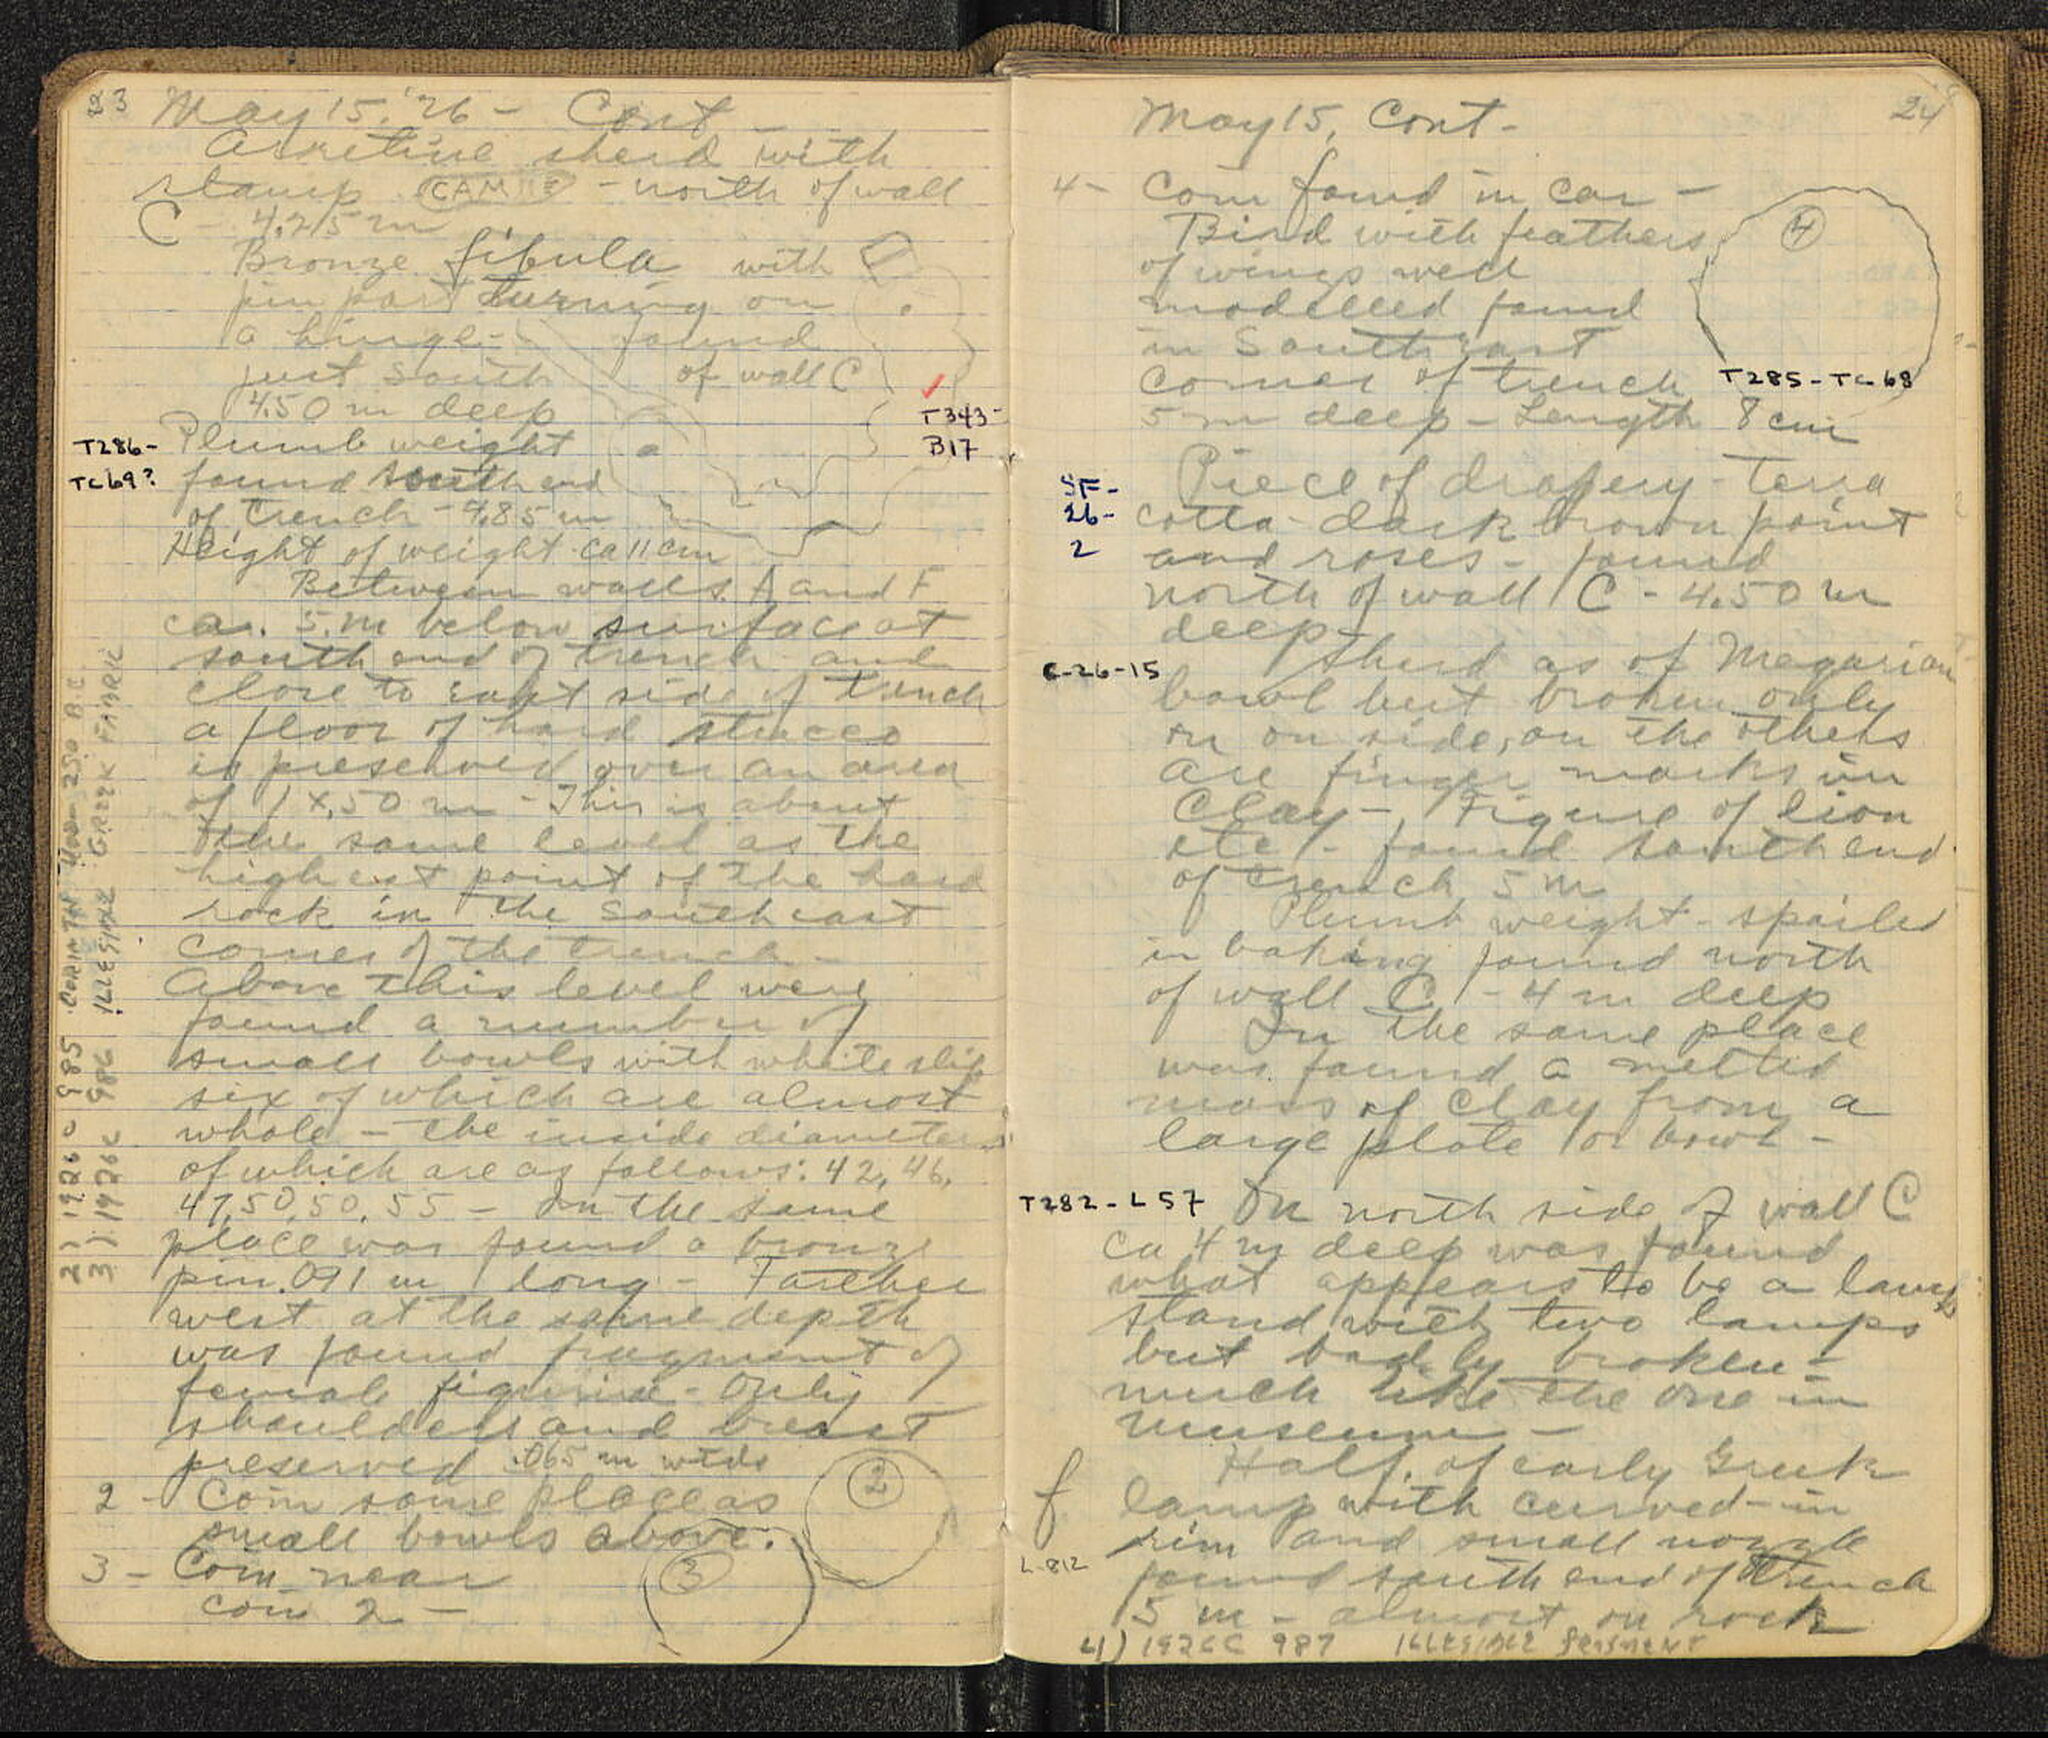 23 May 15, '26 - Cont
Arretine sherd with
stamp - north of wall
C - 4.25 m
Bronze fibula with
pin part turning on
a hinge - found
just south of wall C
4.50 m deep
T343-
B17
T286-
TC69?
Plumb weight
found south end
of trench - 4.85 m
Height of weight ca 11 cm
Between walls A and F
ca. 5. m below surface at
south end of trench and
close to east side of trench
a floor of hard stucco
is preserved over an area
of 1 x .50 m - This is about
the same level as the
highest point of the hard
rock in the southeast
corner of the trench -
Above this level were
found a number of
small bowls with white slip
six of which are almost
whole - the inside diameters
of which are as follows: 42, 46,
47, 50, 50, 55 - In the same
place was found a bronze
pin .091 m long - Farther
west at the same depth
was found fragment of
female figurine - Only
shoulders and breast
preserved .065 m wide
2 - Coin same place as
small bowls above.
2
3 - Coin near
coin 2 -
3
2) 1926 C 985 CORINTH 250 B.C.
3) 1926 C 986 ILLEGIBLE GREEK FABRIC
24
May 15, Cont -
4 - Coin found in car -
4
Bird with feathers
of wings well
modelled found
in Southeast
corner of trench
T285 - TC 68
5 m deep - Length 8 cm
SF-
26-
2
Piece of drapery - terra
cotta - dark brown paint
and roses - found
north of wall C - 4.50 m
deep
C-26-15
Sherd as of Megarian
bowl but broken only
on on side, on the others
are finger marks in
clay - Figure of lion
etc - found south end
of trench 5 m
Plumb weight - spoiled
in baking found north
of wall C - 4 m deep
In the same place
was found a melted
mass of clay from a
large plate or bowl -
T282 - L57 On north side of wall C
ca 4 m deep was found
what appears to be a lamp
stand with two lamps
but badly broken -
much like the one in
museum -
Half of early Greek
f lamp with curved-in
rim and small nozzle
L-812
found south end of trench
5 m - almost on rock
4) 1926 C 987 ILLEGIBLE FRAGMENT